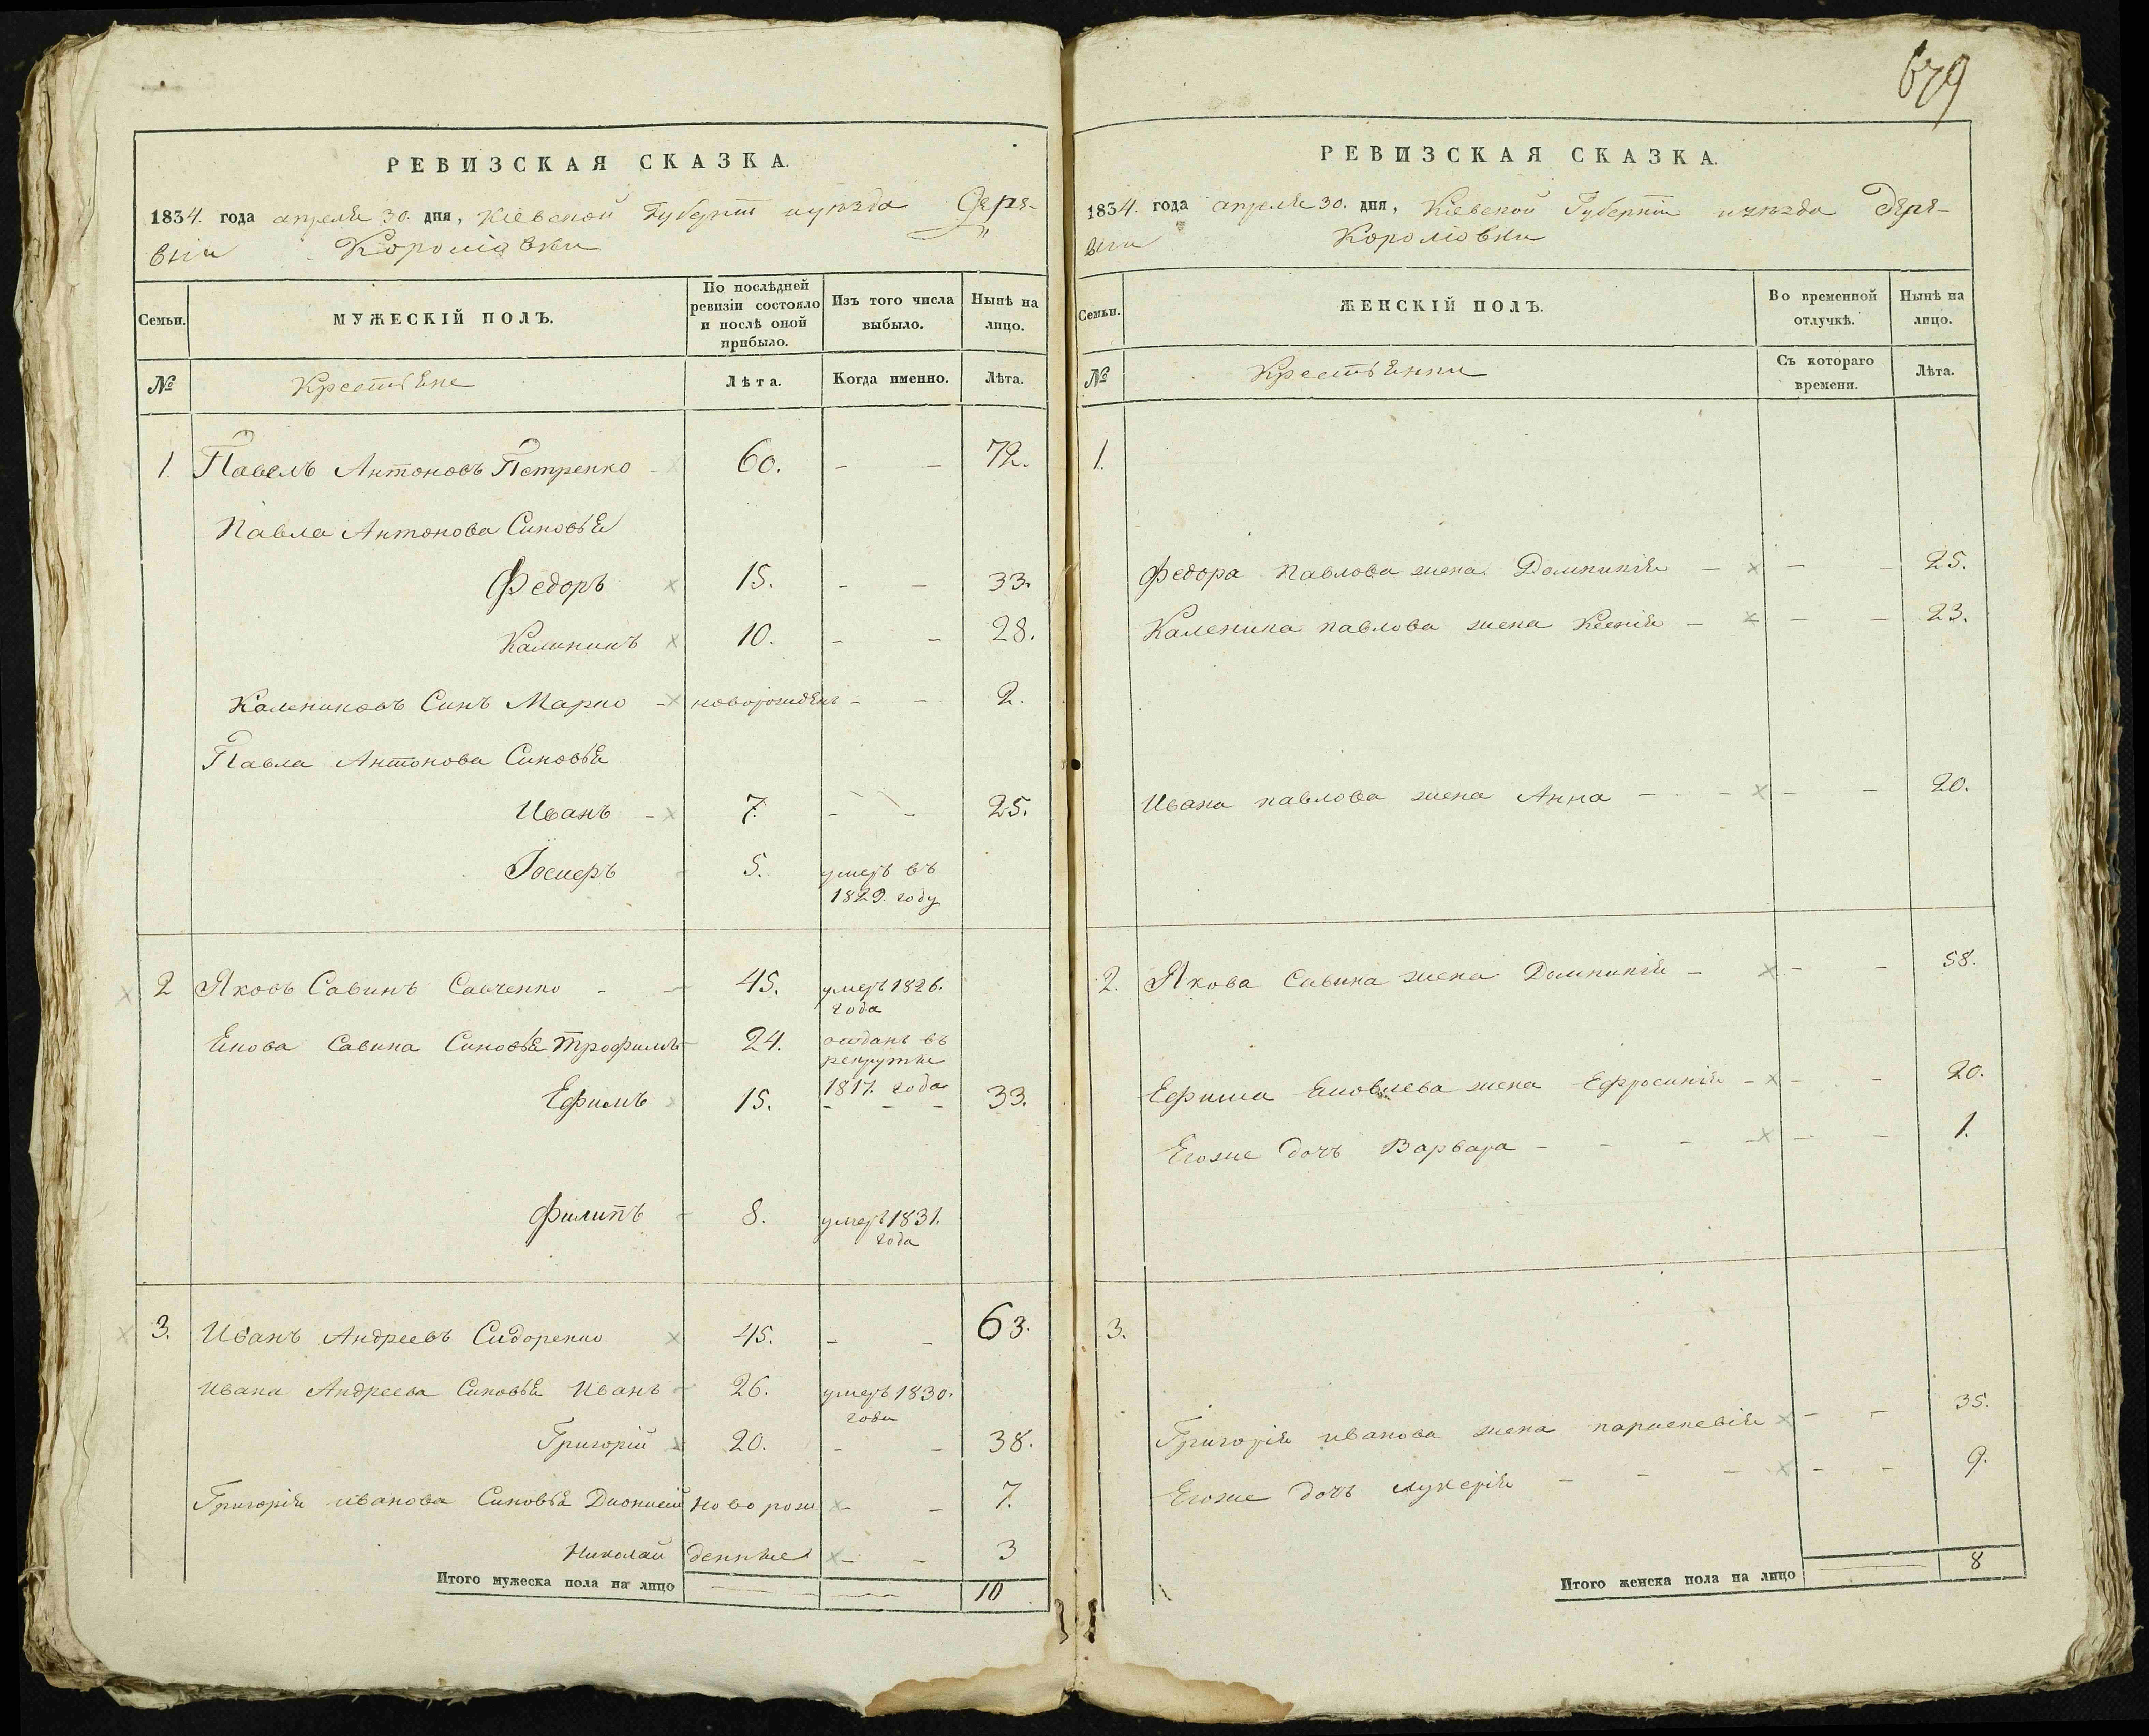 РЕВИЗСКАЯ СКАЗКА.
1834. года апреля 30. дня, Кіевской Губерніи и уезда Дере-
вни Королювки
Семьи.
МУЖЕСКІЙ ПОЛЪ.
По послѣдней
ревизіи состояло
и послѣ оной
прибыло.
Изъ того числа
выбыло.
Нынѣ на
лицо.
№
Крестьяне
Лѣта.
Когда именно.
Лѣта.
1. Павелъ Антоновъ Петренко 60. - - 72.
Павла Антонова Синовья
Федоръ 15. - - 33.
Калиникъ 10. - - 28.
Калениковъ Синъ Марко - новорожденъ - - 2.
Павла Антонова Синовья
Иванъ - 7. - - 25.
Іосифъ 5. умеръ въ
1829. году
2 Яковъ Савинъ Савченко - - 45. умеръ 1826.
года
Якова Савина Синовья Трофимъ 24. отданъ въ
рекруты
1817. года
Ефимъ 15. - - - 33.
Филипъ - 8. умеръ 1831.
года
3. Иванъ Андреевъ Сидоренко 45. - - 63.
Ивана Андреева Синовья Иванъ 26. умеръ 1830.
года
Григорій 20. - - 38.
Григорія иванова Синовья Дионисій новорож - - 7.
Николай денные - - 3
Итого мужеска пола на лицо 10
679
РЕВИЗСКАЯ СКАЗКА.
1834. года апреля 30. дня, Кіевской Губерніи и уезда Дере-
вни Королювки
Семьи.
ЖЕНСКІЙ ПОЛЪ.
Во временной
отлучкѣ.
Нынѣ на
лицо.
№
Крестьянки
Съ котораго
времени.
Лѣта.
1.
Федора Павлова жена Домникія - - - 25.
Каленика павлова жена Ксенія - - - 23.
Ивана павлова жена Анна - - - - 20.
2. Якова Савина жена Домникія - - - 58.
Ефима Яковлева жена Ефросинія - - - 20.
Егоже дочь Варвара - - - - - - 1.
3.
Григорія иванова жена параскевія - - 35.
Егоже дочь лукерія - - - - - 9.
Итого женска пола на лицо 8